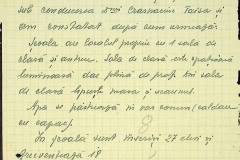 sub conducerea D-nei Crăsnaru Taisa și
am constatat după cum urmează:
Școala are localul propriu cu 1 sală de
clasă și antreu. Sala de clasă este spațioasă
luminoasă dar plină de praf. În sala de
clasă lipsește masa și scaunul.
Apa se păstrează în vas comun (căldare
cu capac).
La școală sunt înscriși 27 elevi și
frecventează 18